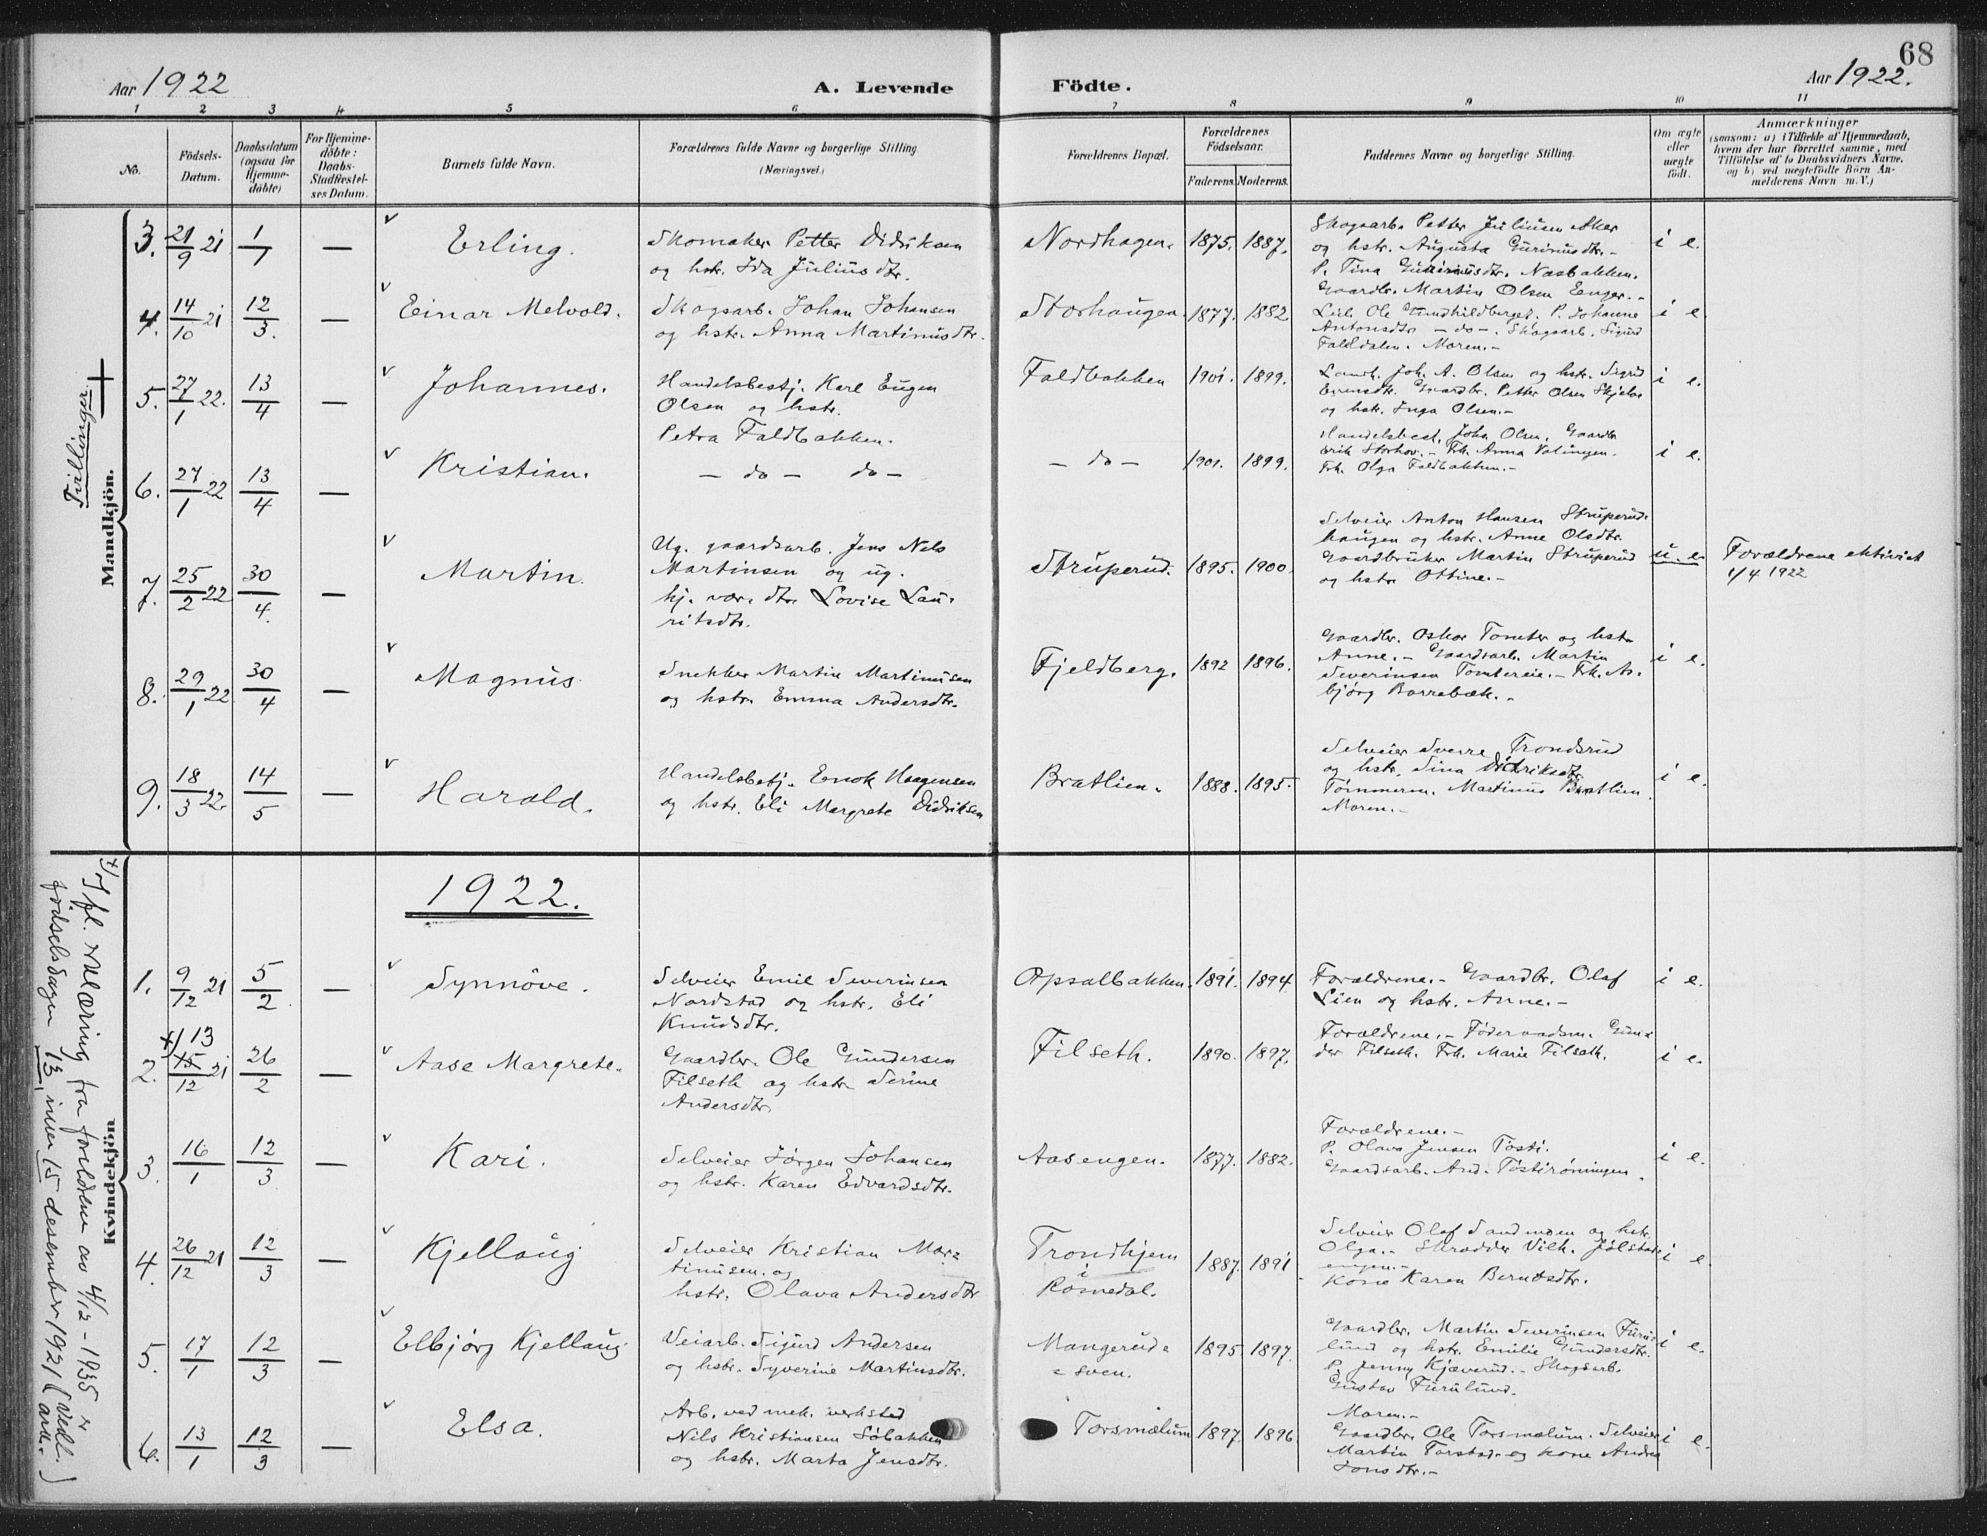 68
Aar 1922
A. Levende
Födte.
Aar 1922.
1 2 3 4 5 6 7 8 9 10 11
No.
Födsels-
Datum.
Daabsdatum
(ogsaa for
Hjemme-
döbte)
For Hjemme-
döbte:
Daabs-
Stadfæstel-
ses Datum.
Barnets fulde Navn.
Forældrenes fulde Navne og borgerlige Stilling.
(Næringsvei.)
Forældrenes Bopæl.
Forældrenes
Födselsaar.
Faderens. Moderens.
Faddernes Navne og borgerlige Stilling.
Om ægte
eller
uægte
födt.
Anmærkninger
(saasom: a) i Tilfælde af Hjemmedaab,
hvem der har forrettet samme, med
Tilföielse af to Daabsvidners Navne.
og b) ved uægtefödte Börn An-
melderens Navn m. V.)
Mandkjön.
Tvillinger.
3. 21/9 21 1/1 — Erling.
Skomaker Petter Didriksen
og hstr. Ida Juliusdtr.
Nordhagen. 1875. 1887.
Skogsarb. Petter Juliusen Aker
og hstr. Augusta Gurinusdtr. –
P. Tina Gurinusdtr. Næsbakken.
i e.
4. 14/10 21 12/3. — Einar Melvold.
Skogsarb. Johan Johansen
og hstr. Anna Martinusdtr.
Storhaugen. 1877. 1882
Gaardbr. Martin Olsen Enger. –
Ole P. Johanne
Antonsdtr – do – . Skogsarb. Sigurd
Falldalen. Moren. –
i e.
5. 27/1 22. 13/4 — Johannes.
Handelsbestj. Karl Eugen
Olsen og hstr.
Petra Faldbakken.
Faldbakken 1901. 1899.
Landh. Joh. A. Olsen og hstr. Sigrid
Evensdtr. Gaardbr. Petter Olsen
og hstr. Inga Olsen. –
i e.
6. 27/1 22 13/4 — Kristian.
– do – do –
– do – 1901. 1899.
Handelsbest. John Olsen. Gaardbr
Erik Storhov. – Frk. Anna Valingen.
Frk. Olga Faldbakken. –
i e.
7. 25/2 22 30/4. — Martin.
Ug. gaardsarb. Jens Nils
Martinsen og ug.
hj. vær. dtr. Lovise Lau-
ritsdtr.
Struperud. 1895. 1900.
Selveier Anton Hansen Struperud-
haugen og hstr. Anne Olsdtr.
Gaardbruker Martin Struperud
og hstr Ottine. –
u. e.
Forældrene ekteviet
1/4 1922
8. 29/1 22. 30/4 — Magnus
Snekker Martin Martinusen
og hstr. Emma Andersdtr.
Fjeldberg. 1892 1896.
Gaardbr. Oskar Tomter og hstr
Anne. – Gaardsarb. Martin
Severinsen Tomtereie. – Frk. As-
bjørg Borrebæk. –
i e.
9. 18/3 22. 14/5 — Harald.
Handelsbstj. Enok Haagensen
og hstr. Eli Margrete Didriksen
Bratlien. 1888. 1895.
Selveier Sverre Trondsrud
og hstr. Sina Didriksdtr.
Tømmerm. Martinus Bratlien.
Moren. –
i e.
1922.
Kvindekjön
1. 9/12 21 5/2 — Synnöve.
Selveier Emil Severinsen
Nordstad og hstr. Eli
Knudsdtr.
Opsalbakken. 1891. 1894
Forældrene. – Gaardbr. Olaf
Lien og hstr. Anne. –
i e.
x) 13
2. 15/12 21 26/2 — Aase Margrete.
Gaardbr. Ole Gundersen
Filseth og hstr Serine
Andersdtr.
Filseth. 1890. 1897.
Forældrene. – Føderaadsm. Gun-
der Filseth. Frk. Marie Filseth.
i e.
3. 16/1 12/3 — Kari.
Selveier Jørgen Johansen
og hstr. Karen Edvardsdtr.
Aasengen. 1877. 1882.
Forældrene. –
P. Olava Jensen Tøsti.
Gaardsarb. And. Tøstirøningen.
i e.
4. 26/12 21 12/3 — Kjellaug
Selveier Kristian Mar-
tinusen. og
hstr. Olava Andersdtr
Trondhjem
i
Romedal. 1887. 1891.
Selveier Olaf Sandmoen og hstr.
Olga. – Skrædder Vilh. Jølstad-
engen. –
Kone Karen Berntsdtr.
i e.
5. 17/1 12/3 — Elbjørg Kjellaug
Veiarb. Sigurd Andersen
og hstr. Syverine Martinsdtr.
Mangerud-
- sven. 1895. 1897.
Gaardbr. Martin Severinsen Furu-
lund og hstr. Emilie Gundersdtr.
P. Jenny Kjæverud. – Skogsarb.
Gustav Furulund.
i e.
6. 13/1 12/3 — Elsa.
Arb. ved mek. verksted
Nils Kristiansen Søbakken
og hstr. Marta Jensdtr.
Torsmælum 1897. 1896.
Moren. –
Gaardbr. Ole Torsmælum. Selveier
Martin Torstad og kone Andrea
Jonsdtr. –
i e.
x) Ifl. erklæring fra foreldrene av 4/12 – 1935 er
fødselsdagen 13, ikke 15 desember 1921 (Vedl.
ark.)